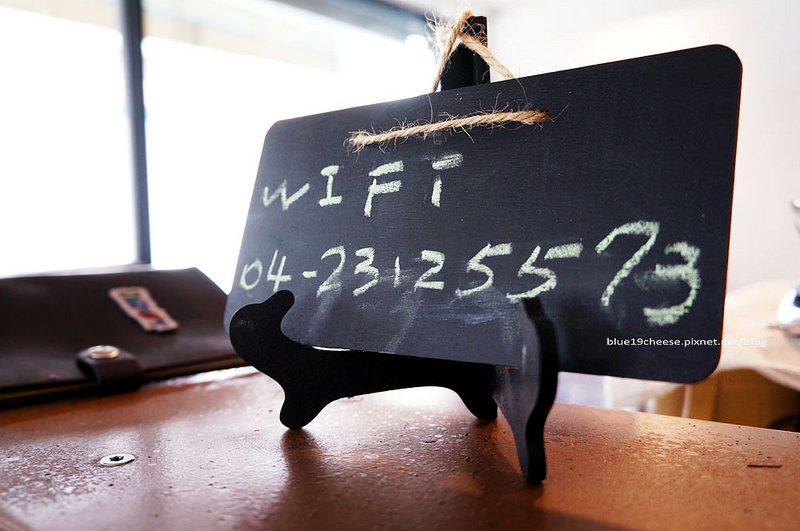 WIFI
04-23125573
blue19cheese.pixnet.net/blog